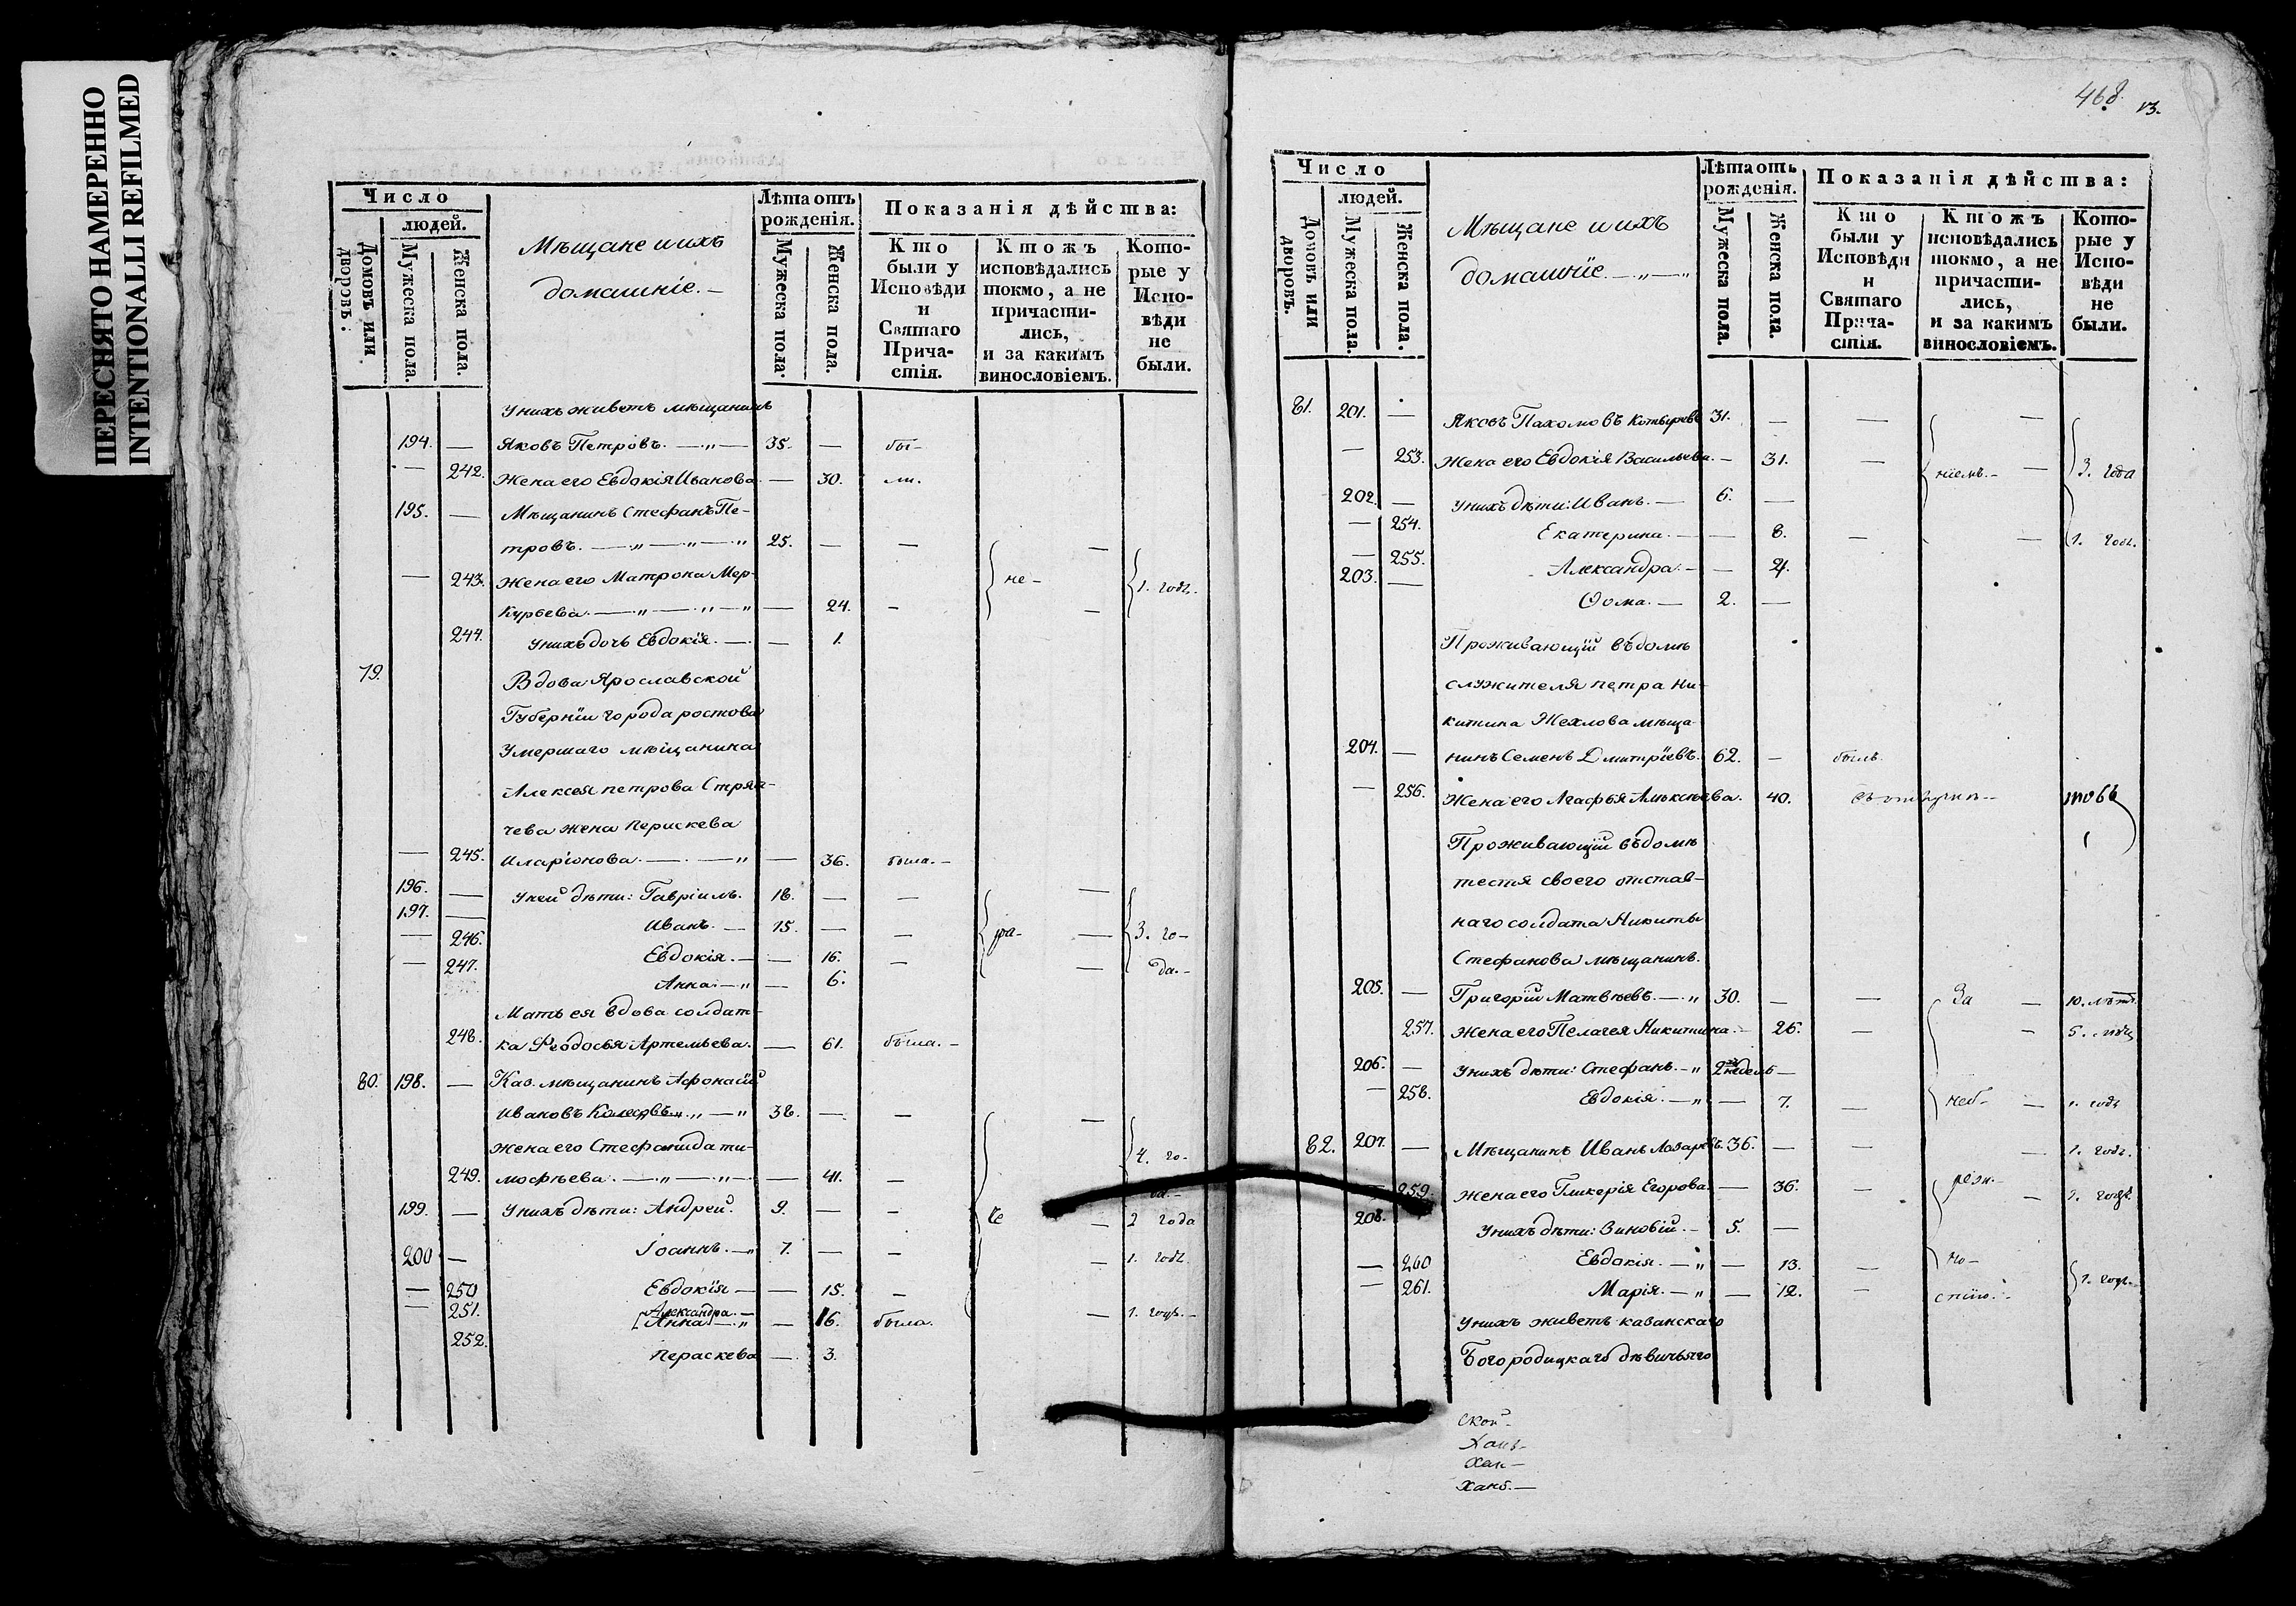 ПЕРЕСНЯТО НАМЕРЕННО
INTENTIONALLI REFILMED
Число
людей.
Домовъ или дворовъ.
Мужеска пола.
Женска пола.
Мѣщане и ихъ
домашніе. —
Лѣта отъ рожденія.
Мужеска пола.
Женска пола.
Показанія дѣйства:
Кто были у Исповѣди и Святаго Причастія.
Ктожъ исповѣдались токмо, а не причастились, и за какимъ винословіемъ.
Которые у Исповѣди не были.
У нихъ живетъ мѣщанинъ
194. — Яковъ Петровъ. — „ — 35. — бы-
— 242. Жена его Евдокія Иванова. — 30. ли.
195. — Мѣщанинъ Стефанъ Пе-
тровъ. — „ — „ — „ 25. — — —
— 243. Жена его Матрона Мер- не- 1. годъ.
курьева. — „ — „ — „ — 24. - —
244. У нихъ дочь Евдокія. — — 1.
79. Вдова Ярославской
Губерніи города ростова
Умершаго мѣщанина
Алексея петрова Стряп-
чева жена перискева
— 245. Иларіонова. — — „ — 36. была. -
196. — У ней дѣти: Гавріилъ. 18. — — —
197. — Иванъ. — 15. — — ра- — 3. го-
— 246. Евдокія. — — 16. — — да. -
— 247. Анна. — „ — 6.
Мать ея вдова солдат-
248. ка Феодосья Артемьева. — 61. была. -
80. 198. — Каз. мѣщанинъ Афонасій
Ивановъ „ — „ 38. — — —
Жена его Стефанида ти- 4. го-
249. мофѣева. — „ — „ — — 41. — да. -
199. — У нихъ дѣти: Андрей. 9. — — Че — 2 года
200 — Іоаннъ. — „ 7. — — — 1. годъ
— 250 Евдокія — — 15. —
— 251. Александра. —
[Анна] — „ — 16. была. — 1. годъ. -
252. Пераскева — 3.
468. 13.
Число
людей.
Домовъ или дворовъ.
Мужеска пола.
Женска пола.
Мѣщане и ихъ
домашніе. — „ — „
Лѣта отъ рожденія.
Мужеска пола.
Женска пола.
Показанія дѣйства:
Кто были у Исповѣди и Святаго Причастія.
Ктожъ исповѣдались токмо, а не причастились, и за какимъ винословіемъ.
Которые у Исповѣди не были.
81. 201. — Яковъ Пахомовъ 31. — — —
— 253. Жена его Евдокія Васильева. — 31. — ніемъ. - — 3. года
202. — У нихъ дѣти: Иванъ. — 6. —
— 254. Екатерина. — — 8. — — 1. годъ.
— 255. Александра. — — 4.
203. — Ѳома. — 2. —
Проживающій въ домѣ
служителя петра Ни-
китина Жехлова мѣща-
204. — нинъ Семенъ Дмитріевъ. 62. — былъ.
— 256. Жена его Агафья Алексѣева. 40.
Проживающій въ домѣ
тестя своего отстав-
наго солдата Никиты
Стефанова мѣщанинъ.
205. — Григорій Матвѣевъ. — „ 30. — — За — 10. лѣтъ.
257. Жена его Пелагея Никитина. — 26. — — 5.
206. — У нихъ дѣти: Стефанъ. - „ —
— 258. Евдокія. — „ — 7. — неб- — 1. годъ
82. 207. — Мѣщанинъ Иванъ Лазаревъ. 36. — — — 1. годъ.
— 259. Жена его Гликерія Егорова. — 36. — — 1. годъ.
208. — У нихъ дѣти: Зиновій. — 5. —
— 260 Евдокія. — „ — 13. — но- 1. годъ.
— 261. Марія. — „ — 12. — стію. -
У нихъ живетъ казанскаго
Богородицкаго дѣвичьяго